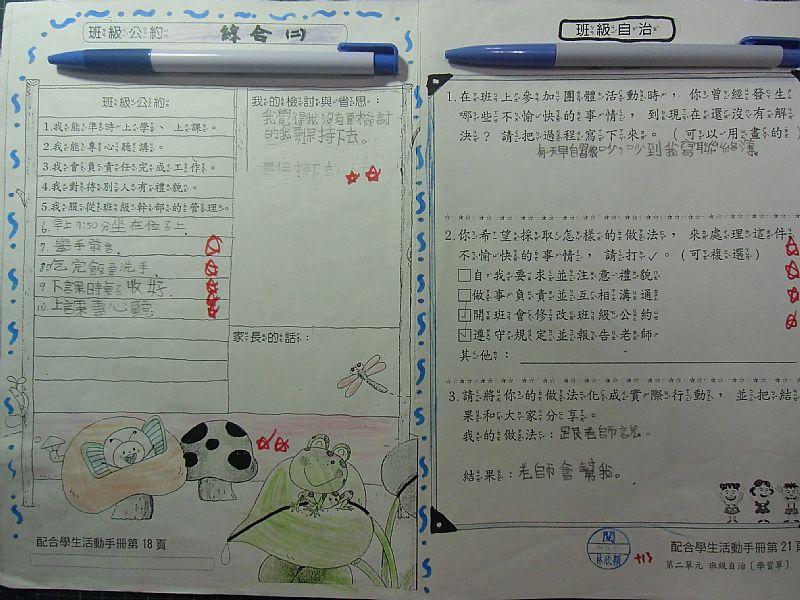 班級公約 綜合(二)
班級公約
1.我能準時上學、上課。
2.我能專心聽講。
3.我會負責任完成工作。
4.我對待別人有禮貌。
5.我服從班級幹部的管理。
6.早上7:50分坐在位子上.
7.舉手發言.
8.吃完飯要洗手.
9.下課時收好.
10.上課專心聽
我的檢討與省思:
我覺得我沒有要檢討
的我要保持下去。
要保持下去
家長的話:
配合學生活動手冊第18頁
班級自治
1.在班上參加團體活動時,你曾經發生
哪些不愉快的事情,到現在還沒有解
決?請把過程寫下來。(可以用畫的
有天早自習很吵,吵到我寫聯絡簿。
2.你希望採取怎樣的做法,來處理這件
不愉快的事情,請打✓。(可複選)
□自我要求並注意禮貌
□做事負責並互相溝通
☑開班會修改班級公約
☑遵守規定並報告老師
其他:
3.請將你的做法化成實際行動,並把結
果和大家分享。
我的做法:跟老師說。
結果:老師會幫我。
閱
林欣穎
+13
配合學生活動手冊第21頁
第二單元 班級自治〔學習單〕